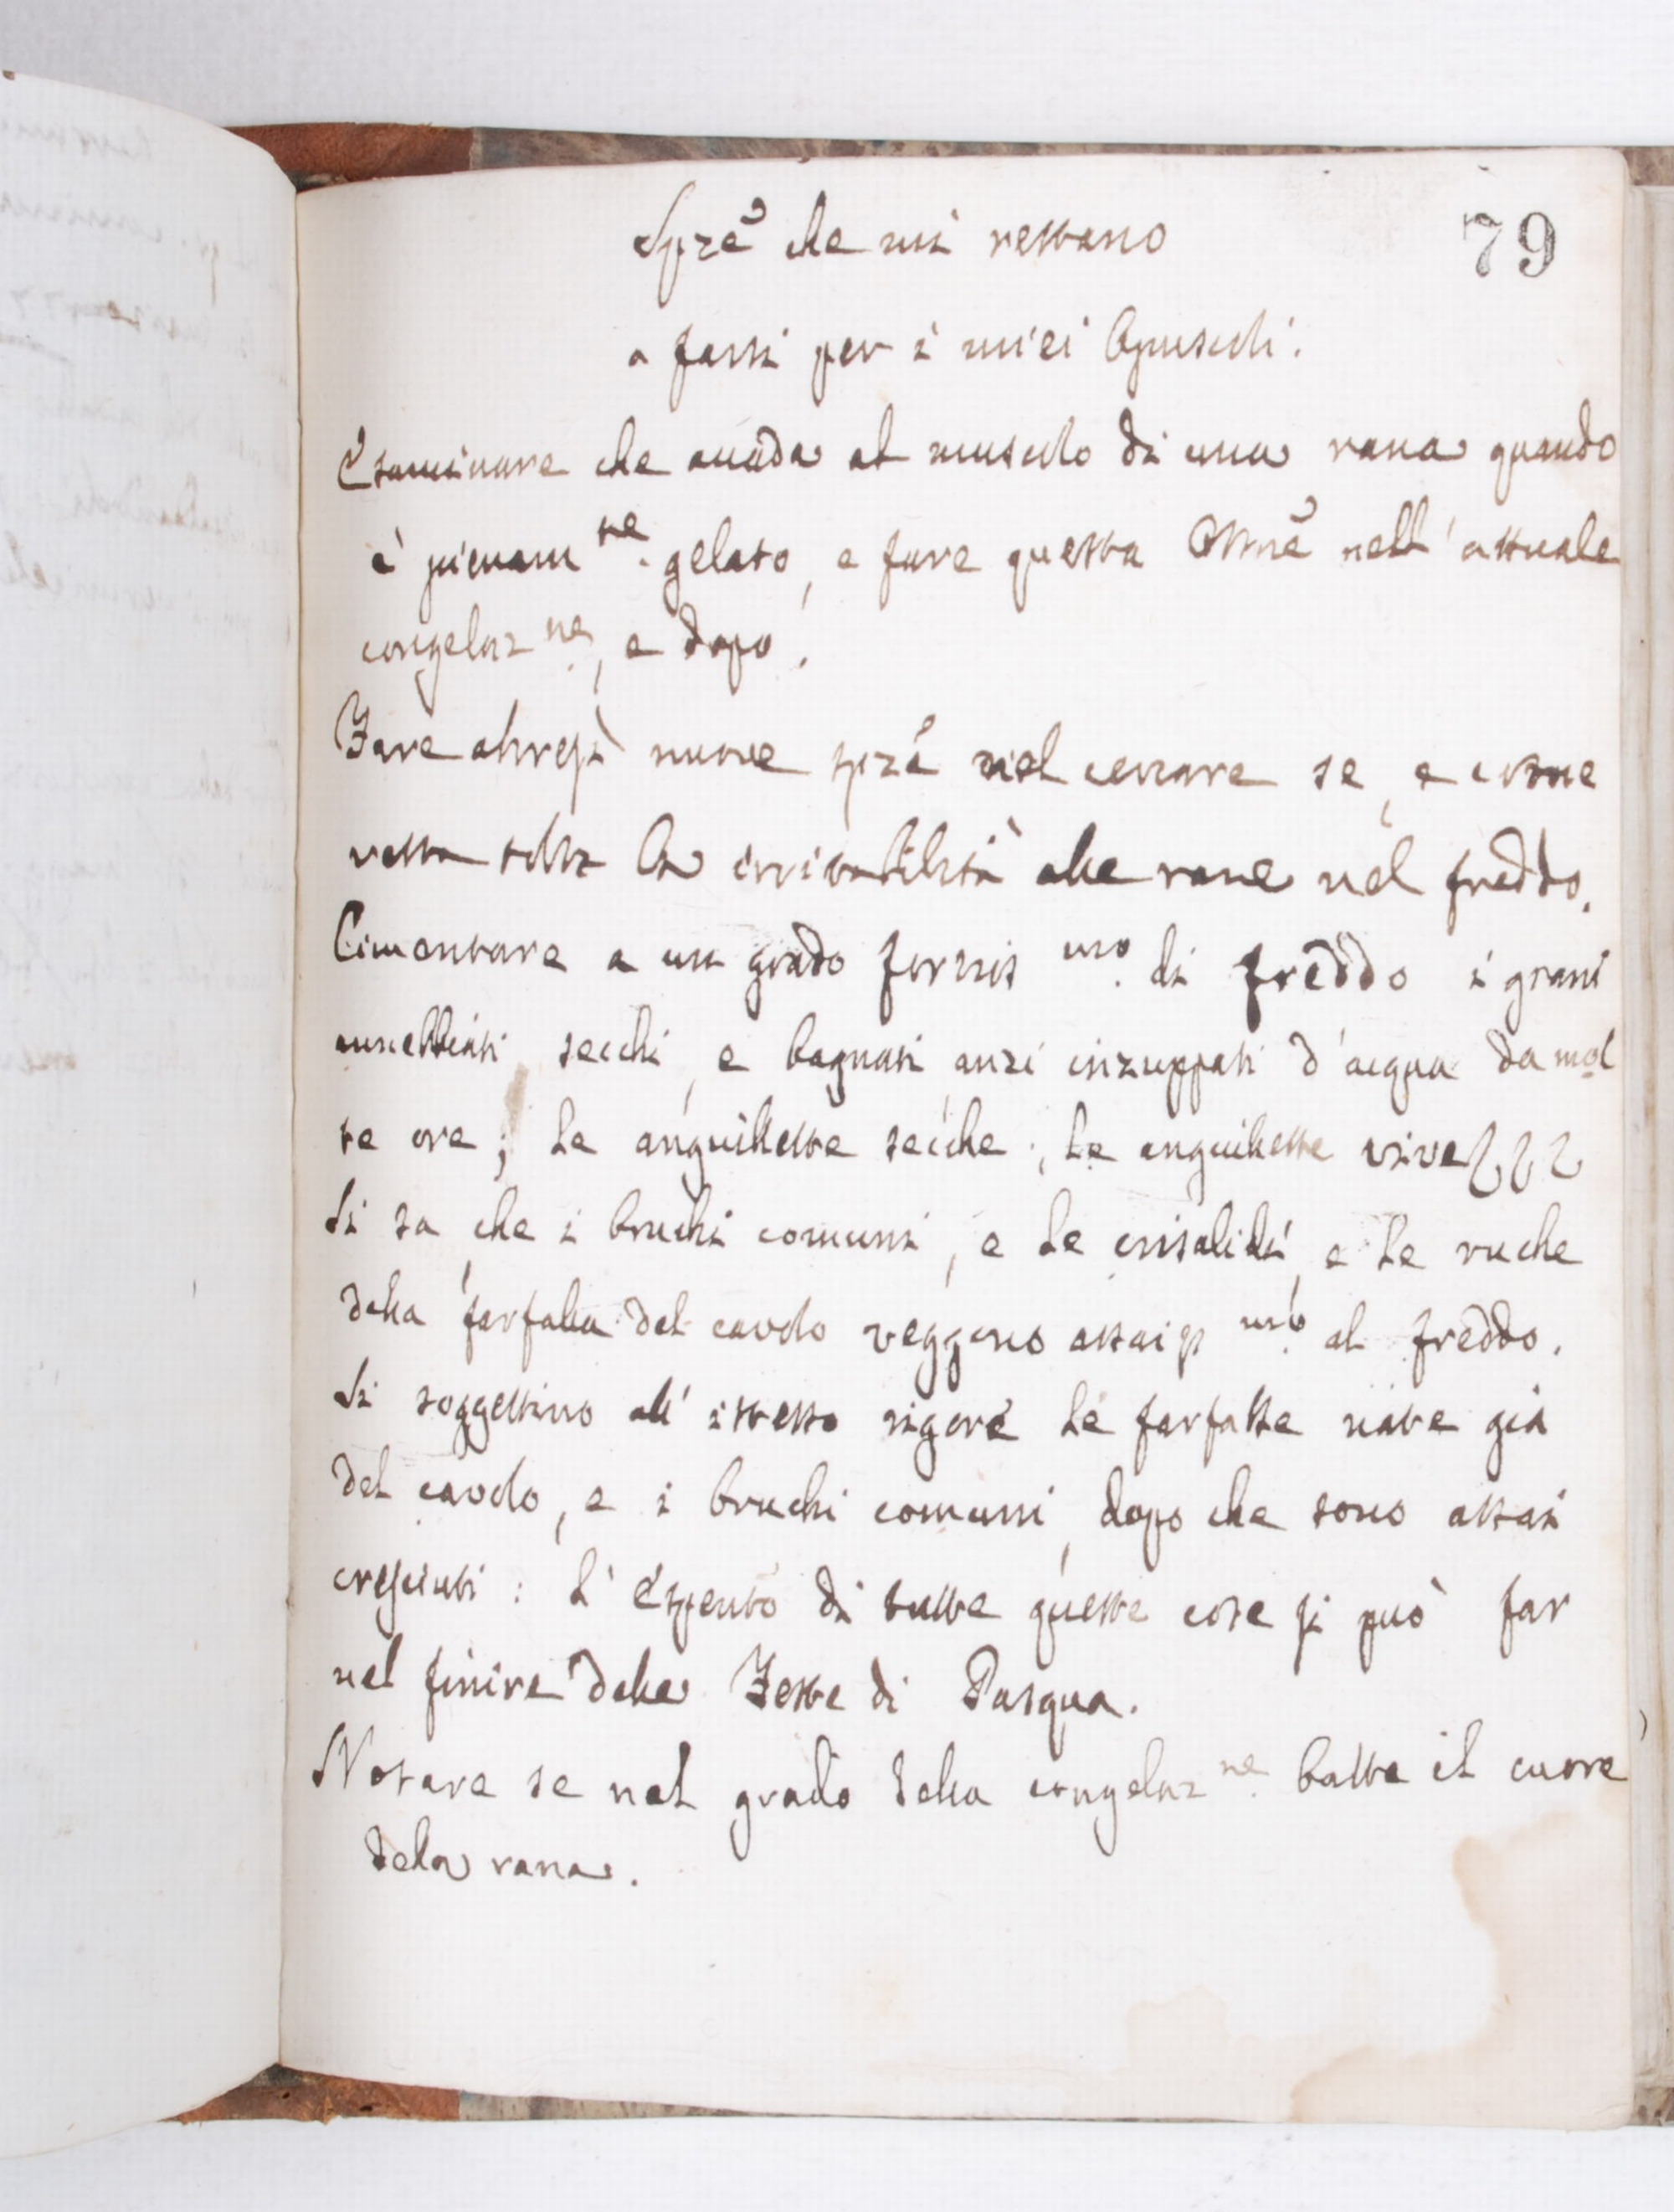 79
Spzē che mi restano
a farsi per i miei Opuscoli.
Esaminare che accada al muscolo di una rana quando
è pienam te. gelato, e fare questa Ossnē nell'attuale
congelaz ne., e dopo.
Fare altresì nuove spzē nel cercare se, e come
resta tolta la irritabilità alle rane nel freddo.
Cimentare a un grado fortiss mo. di freddo i grani
annebbiati secchi, e bagnati, anzi inzuppati d'acqua da mol
te ore; Le anguillette secche; Le anguillette vive
Si sa, che i bruchi comuni, e Le crisalidi, e Le ruche
della farfalla del cavolo reggono assaiss mo. al freddo.
Si soggettino all'istesso rigore Le farfalle nate già
del cavolo, e i bruchi comuni, dopo che sono assai
cresciuti: L'espento di tutte queste cose si può far
nel finire delle Feste di Pasqua.
Notare se nel grado della congelaz ne. batte il cuore
della rana.